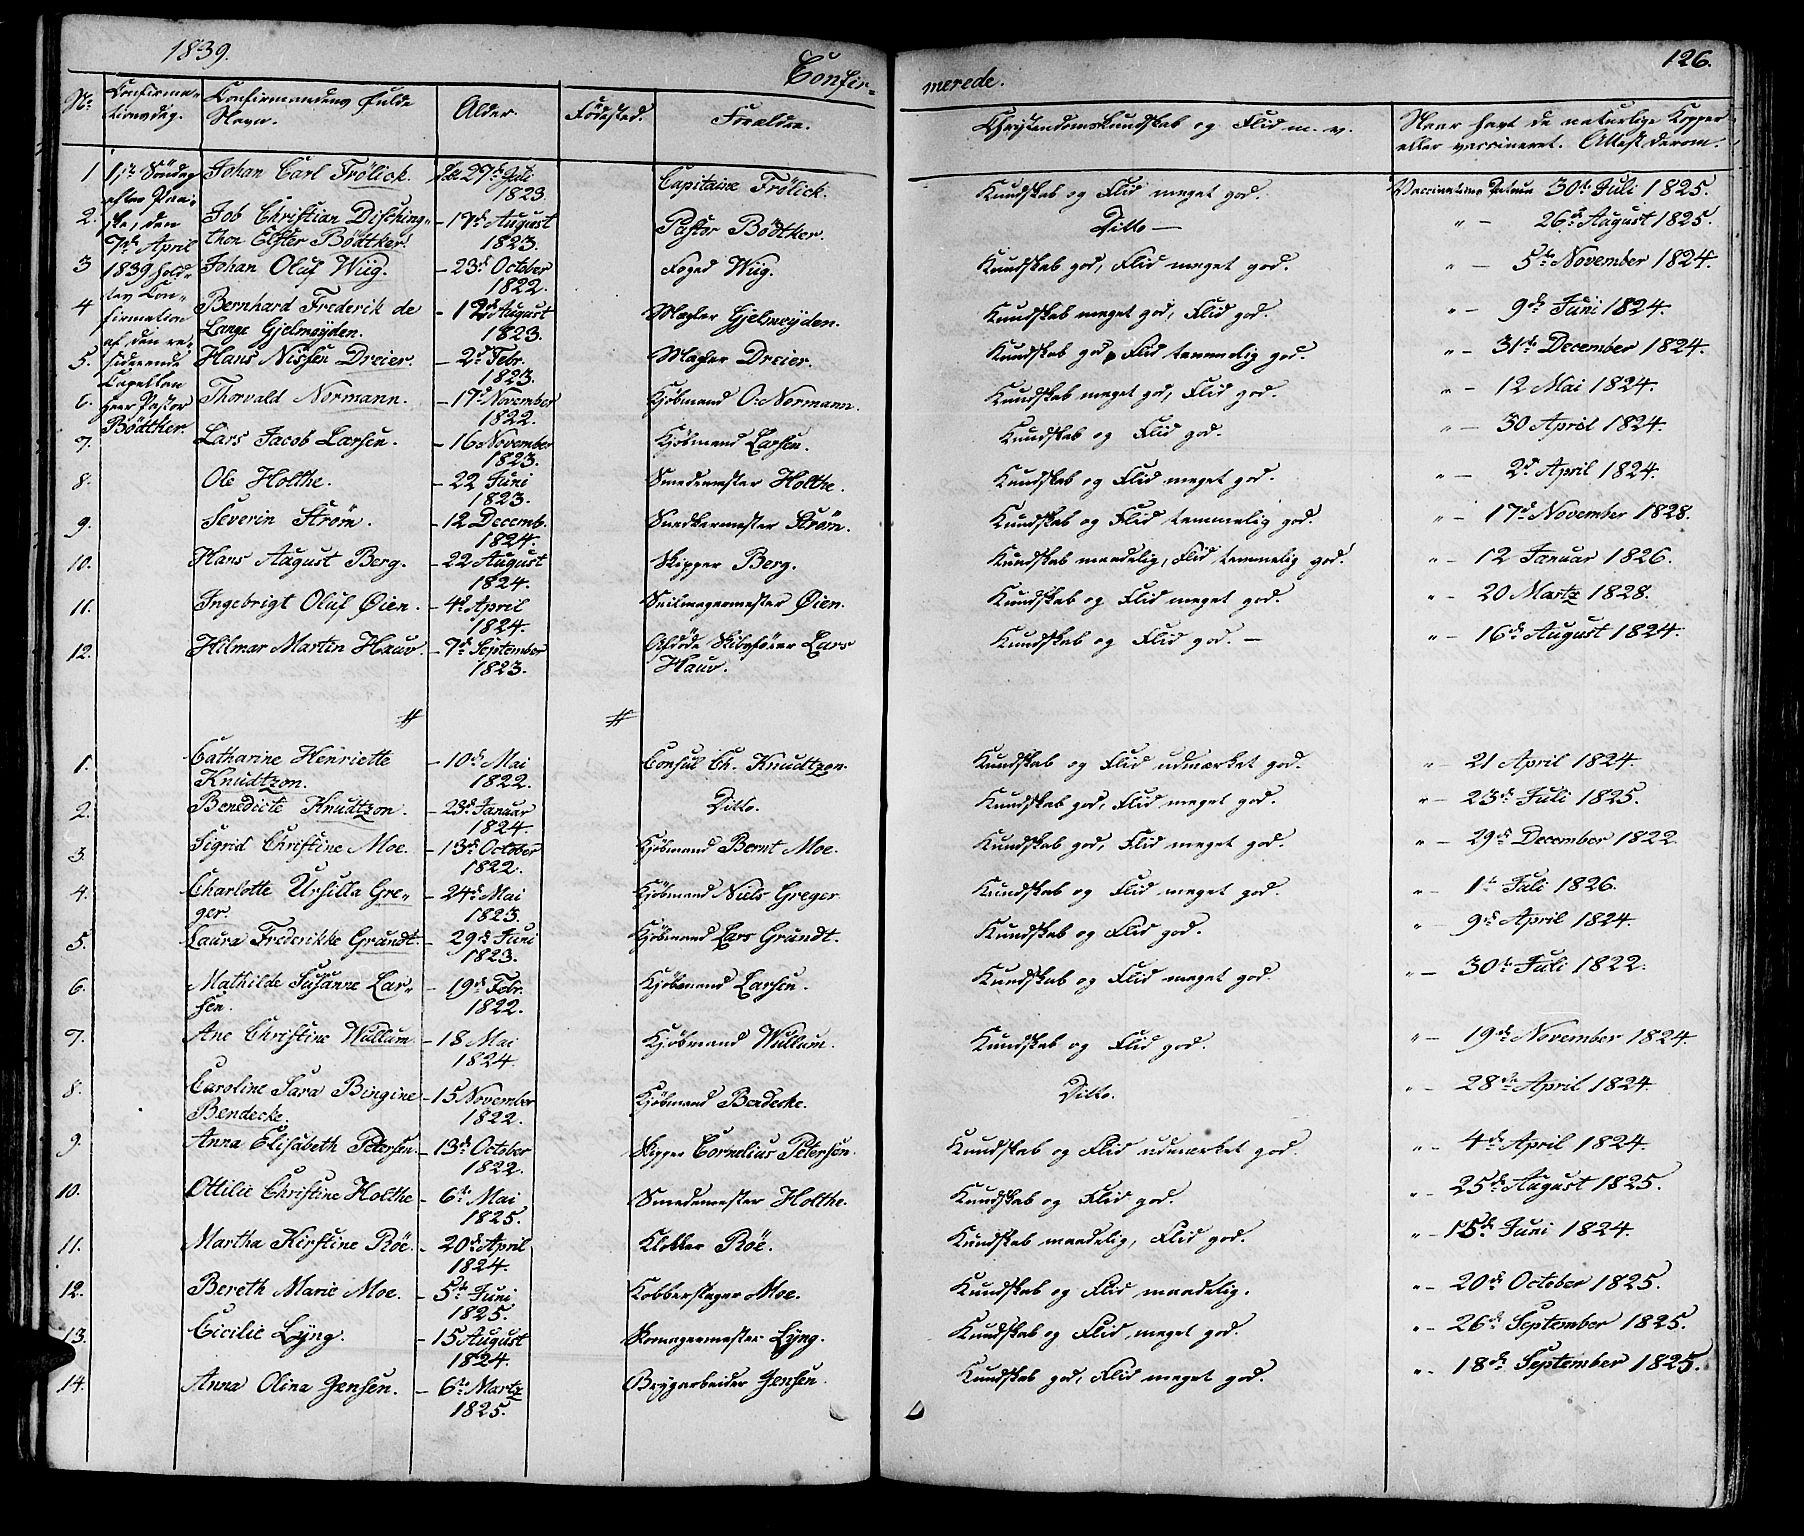 1839.
Confir-
merede.
126.
No
Confirma-
tionsdag.
Confirmandens fulde
Navn.
Alder.
Födested.
Forældre.
Christendomskundskab og Flid m. v.
Naar havt de naturlige Kopper
eller vaccineret. Attest derom.
1ste Söndag
efter Paa-
ske, den
7de April
1839 hold-
tes Con-
firmation
af den re-
siderende
Capellan
Herr Pastor
Bödtker.
1 Johan Carl Frölich. Född 27de Juli 1823. Capitaine Frölich. Kundskab og Flid meget god. Vaccinations Datum 30te Juli 1825.
2. Job Christian Disching-
thon Elster Bödtker. – 17de August 1823. Pastor Bödtker. Ditto — " – 26de August 1825.
3 Johan Oluf Wiig. – 23de October 1822. Foged Wiig. Kundskab god, Flid meget god. " – 5te November 1824.
4 Bernhard Frederik de
Lange Gjelmeÿden. – 19de August 1823. Mægler Gjelmeÿden. Kundskab meget god, Flid god. " – 9de Juni 1824.
5. Hans Nissen Dreier. – 2de Febr. 1823. Mægler Dreier. Kundskab god, Flid temmelig god. " – 31te December 1824.
6. Thorvald Normann. – 17de November 1822. Kjöbmand O. Normann. Kundskab meget god, Flid god. " – 12 Mai 1824.
7. Lars Jacob Larsen. – 16 November 1823. Kjöbmand Larsen. Kundskab og Flid god. " – 30 April 1824.
8. Ole Holthe. – 22 Juni 1823. Smedemester Holthe. Kundskab og Flid meget god. " – 2de April 1824.
9. Severin Ström. – 12 Decemb. 1824. Snedkermester Ström. Kundskab og Flid temmelig god. " – 17de November 1828.
10. Hans August Berg. – 22 August 1824. Skipper Berg. Kundskab maadelig, Flid temmelig god. " – 12 Januar 1826.
11. Ingebrigt Oluf Øien. – 4de April 1824. Seilmagermester Øien. Kundskab og Flid meget god. " – 20 Martz 1828.
12. Hilmar Martin Hauv. – 7de September 1823. Afdöde Skibsförer Lars
Hauv. Kundskab og Flid god – " – 16de August 1824.
# #
1. Catharine Henriette
Knudtzon. – 10de Mai 1822. Consul Ch. Knudtzon. Kundskab og Flid udmærket god. " – 21 April 1824.
2. Benedicte Knudtzon. – 23de Januar 1824. Ditto. Kundskab god, Flid meget god. " – 23de Juli 1825.
3. Sigrid Christine Moe. – 13de October 1822. Kjöbmand Bernt Moe. Kundskab god, Flid meget god. " – 29de December 1822.
4. Charlotte Ursilla Gre-
ger. – 24de Mai 1823. Kjöbmand Niels Greger. Kundskab og Flid meget god. " – 1te Juli 1826.
5. Laura Frederikke Grundt. – 29de Juni 1823. Kjöbmand Lars Grundt. Kundskab og Flid god. " 9de April 1824.
6. Mathilde Susanne Lar-
sen. – 19de Febr. 1822. Kjöbmand Larsen. Kundskab og Flid meget god. " – 30te Juli 1822.
7. Ane Christine Wullum – 18 Mai 1824. Kjöbmand Wullum. Kundskab og Flid god. " – 19de November 1824.
8. Caroline Sara Bingine
Bendecke. – 15 November 1822. Kjöbmand Bendecke. Ditto. " – 28de April 1824.
9. Anna Elisabeth Petersen. – 13de October 1822. Skipper Cornelius Petersen. Kundskab og Flid udmærket god. " – 4de April 1824.
10. Ottilie Christine Holthe – 6te Mai 1825. Smedemester Holthe. Kundskab og Flid god. " – 25de August 1825.
11. Martha Kirstine Röe. – 20de April 1824. Klokker Röe. Kundskab maadelig, Flid god. " – 15de Juni 1824.
12. Bereth Marie Moe. – 5te Juni 1825. Kobberslager Moe. Kundskab og Flid maadelig. " – 20de October 1825.
13. Cicilie Lÿng. – 15 August 1824. Skomagermester Lÿng. Kundskab og Flid meget god. " – 26de September 1825.
14. Anna Olina Jensen. – 6te Martz 1825. Brygarbeider Jensen. Kundskab god, Flid meget god. " – 18de September 1825.